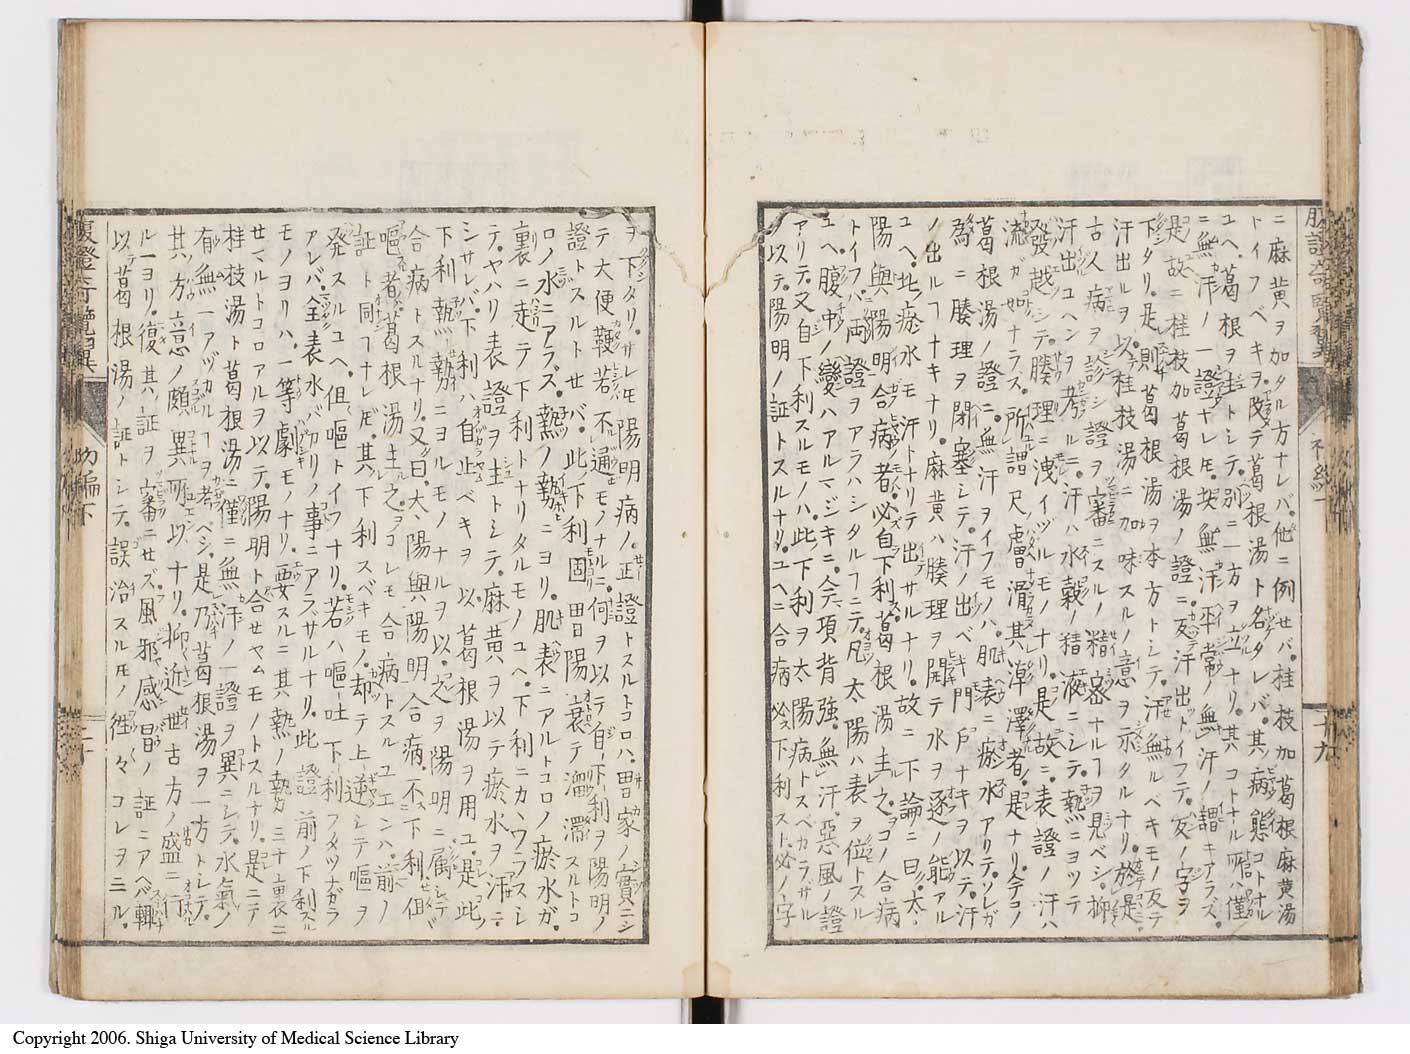 ニ麻黄ヲ加タル方ナレバ他ニ例セバ桂枝加葛根麻黄湯
トイフベキヲ改テ葛根湯ト名タレバ其病態コトナル
ユヘ葛根ヲ主トシテ別ニ一方ヲ立ナリ其コトナル所ハ僅
ニ無汗ノ一證ナレ𪜈其無汗平常ノ無汗ノ謂ニアラズ
是故ニ桂枝加葛根湯ノ證ニ反汗出トイフテ反ノ字ヲ
下タリ是則葛根湯ヲ本方トシテ汗無ルベキモノ反テ
汗出ルヲ以テ桂枝湯ニ加味スルノ意ヲ示タルナリ於是
古人病ヲ診シ證ヲ審ニスルノ精密ナルヿヲ見ベシ抑
汗出ユヘンヲ考ルニ汗ハ水穀ノ精液ニシテ熱ニヨツテ
發越シテ腠理ニ洩イヅルモノナリ是故ニ表證ノ汗ハ
流ガ如ナラス所謂尺膚滑其淖澤者是ナリ今コノ
葛根湯ノ證ニ無汗ヲイフモノハ肌表ニ瘀水アリテソレガ
為ニ腠理ヲ閉塞シテ汗ノ出ベキ門戸ナキヲ以テ汗
ノ出ルヿナキナリ麻黄ハ腠理ヲ開テ水ヲ逐ノ能アル
ユヘ此瘀水モ汗トナリテ出サルナリ故ニ下論ニ曰太
陽與陽明合病者必自下利葛根湯主之コノ合病
トイフハ両證ヲアラハシタルヿニテ凡太陽ハ表ヲ位トスル
ユヘ腹中ノ變ハアルマジキニ今項背強無汗惡風ノ證
アリテ又自下利スルモノハ此下利ヲ太陽病トスベカラザル
ヲ以テ陽明ノ証トスルナリユヘニ合病必ス下利スト必ノ字
ヲ下タリサレ𪜈陽明病ノ正證トスルトコロハ胃家ノ實ニシ
テ大便鞕若不通モノナルニ何ヲ以テ自下利ヲ陽明ノ
證トスルトセバ此下利固胃陽衰テ溜濡スルトコ
ロノ水ニアラズ熱ノ勢ニヨリ肌表ニアルトコロノ瘀水ガ
裏ニ走テ下利トナリタルモノユヘ下利ニカヽワラスシ
テヤハリ表證ヲ主トシテ麻黄ヲ以テ瘀水ヲ汗ニ
シサレバ下利ハ自止ベキヲ以葛根湯ヲ用ユ是此
下利熱勢ニヨルモノナルヲ以之ヲ陽明ニ属シテ
合病トスルナリ又曰太陽與陽明合病不下利但
嘔者葛根湯主之コレモ合病トスルユエンハ前ノ
証ト同ヿナレ𪜈其下利スベキモノ却テ上逆シテ嘔ヲ
発スルユヘ但嘔トイフナリ若ハ嘔吐下利フタツナガラ
アレバ全表水バカリノ事ニアラサルナリ此證前ノ下利スル
モノヨリハ一等劇モノナリ要スルニ其熱ノ勢カニ十裏ニ
セマルトコロアルヲ以テ陽明ト合セヤムモノトスルナリ是ニテ
桂枝湯ト葛根湯ニ僅ニ無汗ノ一證ヲ異ニシテ水氣ノ
有無ニアヅカルヿヲ考ベシ是乃葛根湯ヲ一方トシテ
其ノ方意ノ頗異所以ナリ抑近世古方ノ盛ニ行
ルヽヨリ復其ノ証ヲ審ニセズ風邪感冒ノ証ニアヘバ輒
以テ葛根湯ノ証トシテ誤治スルモノ徃々コレヲミル
腹證奇覧翼
初編下
二十
十九
Copyright 2006. Shiga University of Medical Science Library